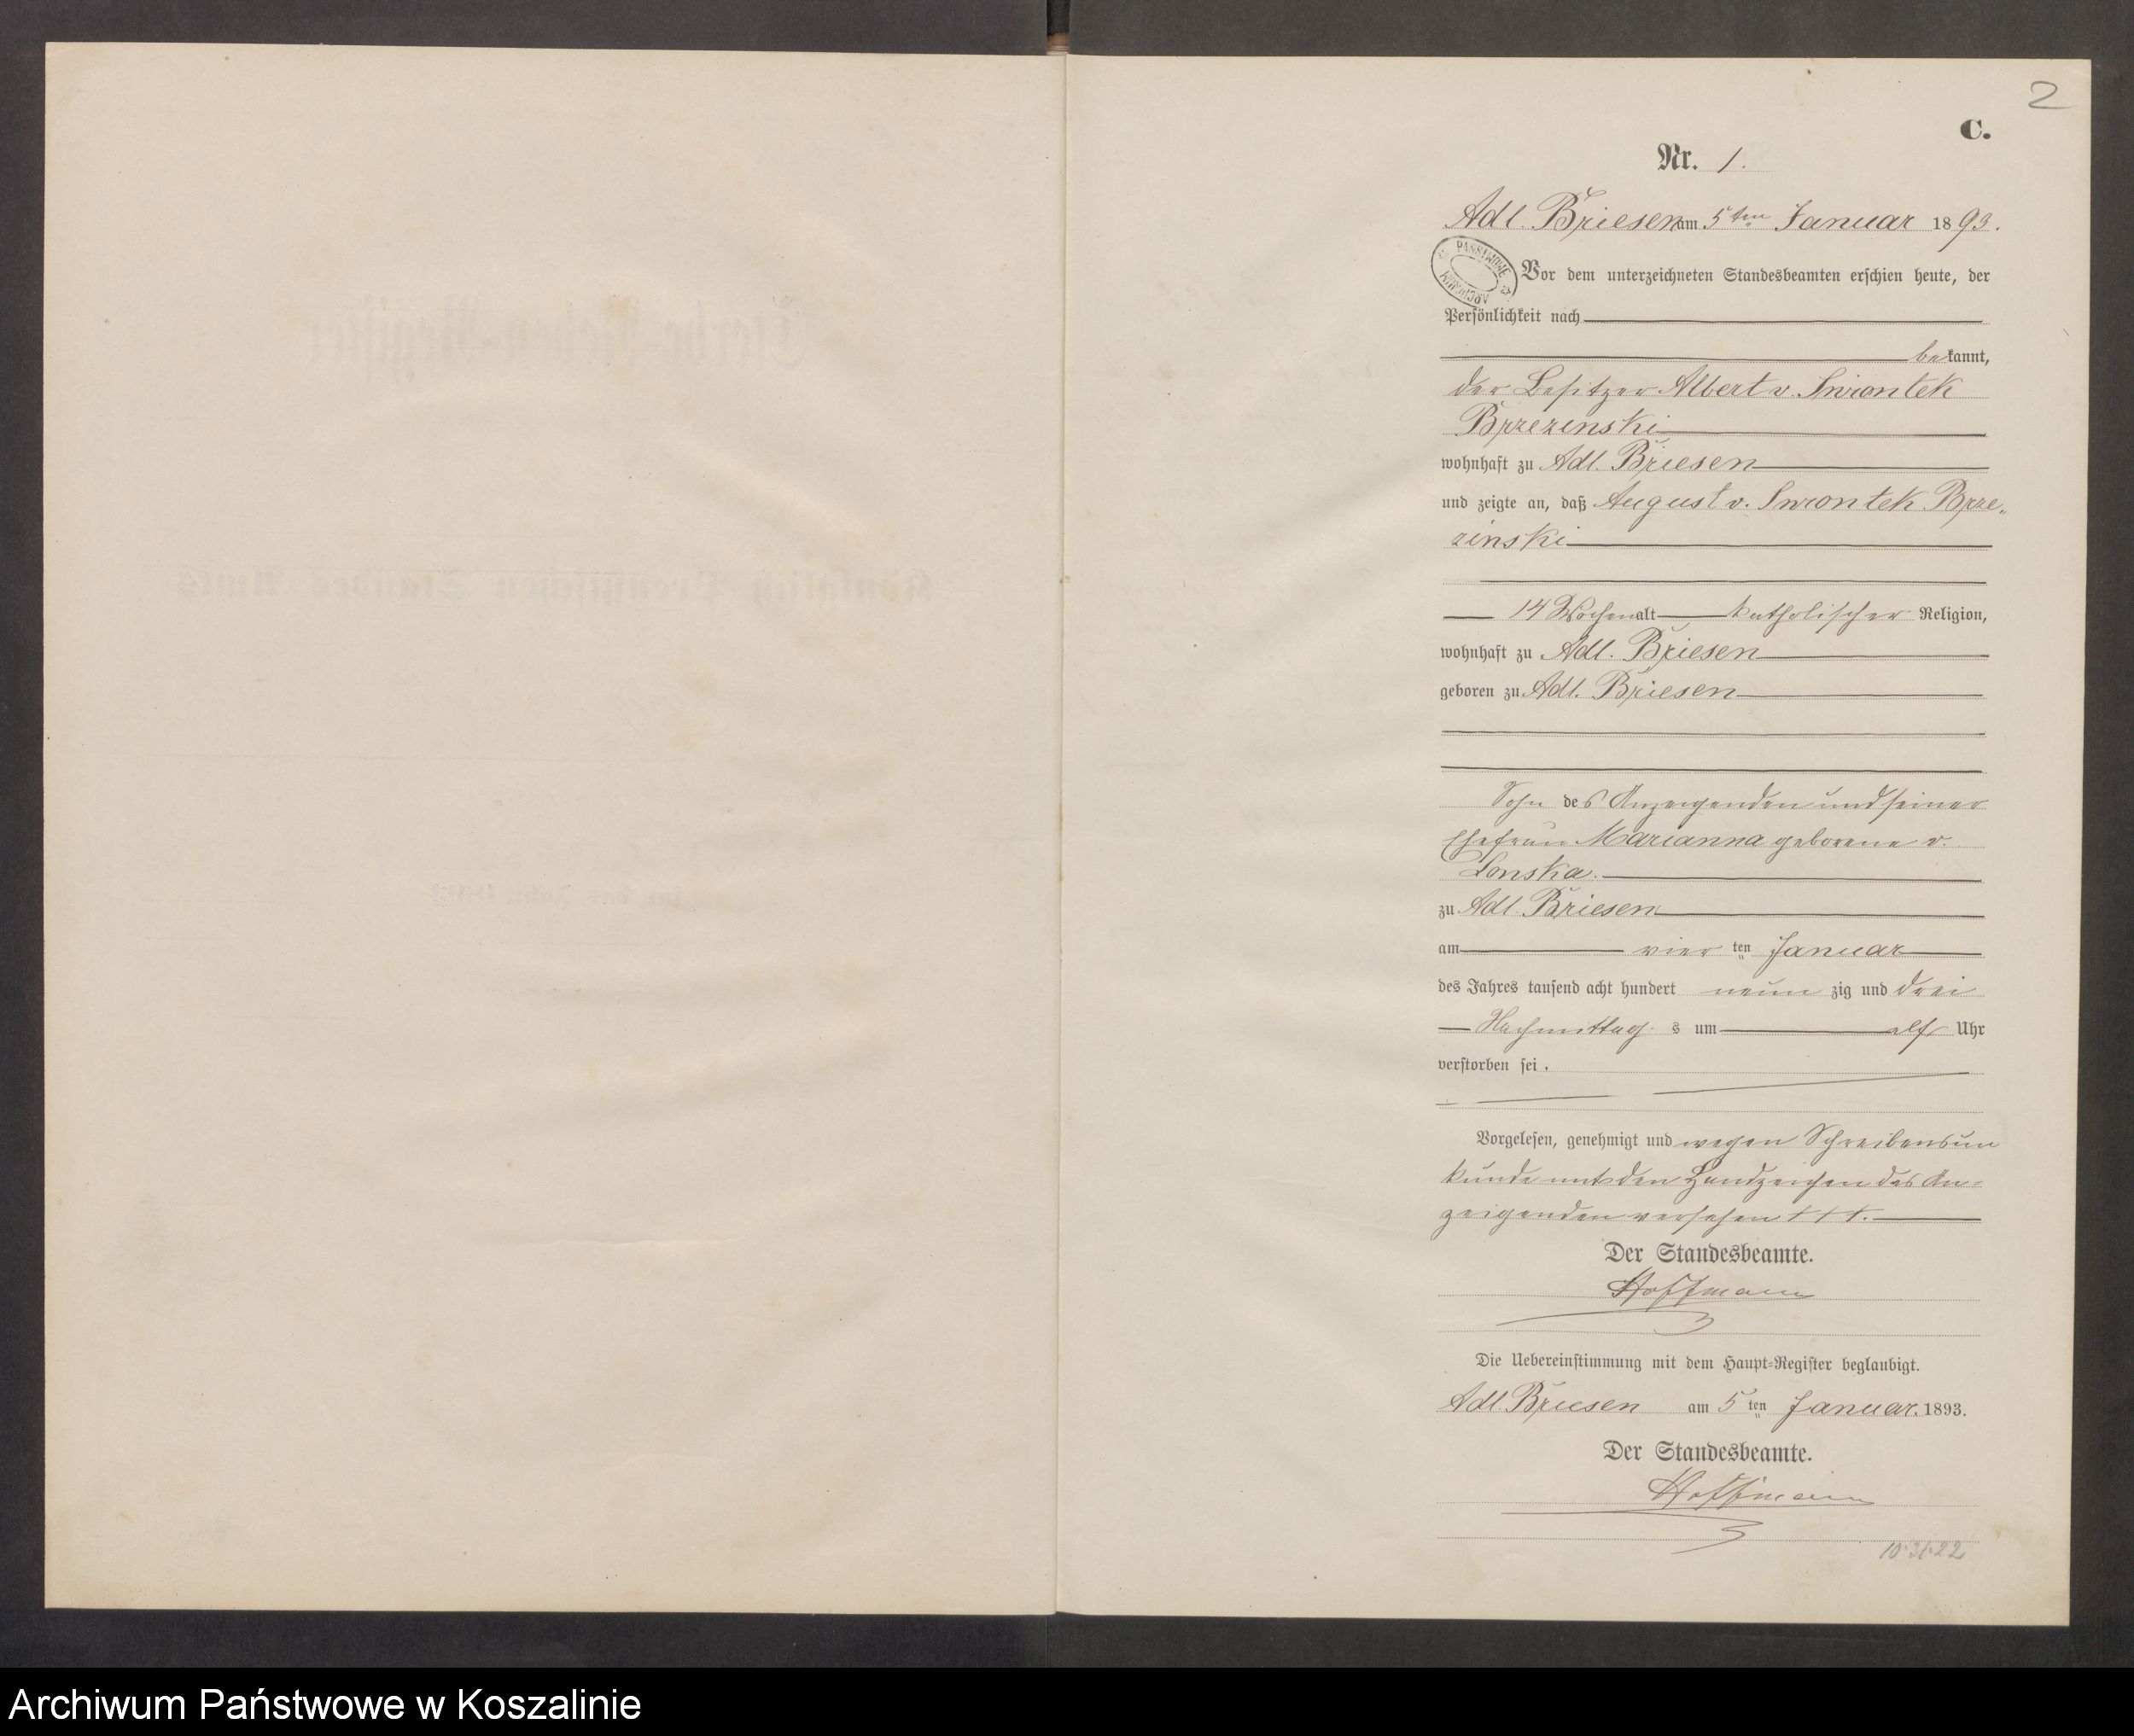 2
C.
Nr. 1.
Adl. Briesen am 5ten Januar 1893.
PAŃSTWOWE
ARCHIWUM
Vor dem unterzeichneten Standesbeamten erschien heute, der
Persönlichkeit nach
bekannt,
der Besitzer Albert v. Swiontek
Brzezinski
wohnhaft zu Adl. Briesen
und zeigte an, daß August v. Swiontek Brze„
zinski
14 Wochen alt katholischer Religion,
wohnhaft zu Adl. Briesen
geboren zu Adl. Briesen
Sohn des Anzeigenden und seiner
Ehefrau Marianna geborene v.
Lonska.
zu Adl. Briesen
am vier ten Januar
des Jahres tausend acht hundert neun zig und drei
Nachmittag s um elf Uhr
verstorben sei.
Vorgelesen, genehmigt und wegen Schreibensun
kunde mit den Handzeichen des An=
zeigenden versehen +++.
Der Standesbeamte.
Hoffmann
Die Uebereinstimmung mit dem Haupt=Register beglaubigt.
Adl. Briesen am 5 ten Januar. 1893.
Der Standesbeamte.
Hoffmann
Archiwum Państwowe w Koszalinie